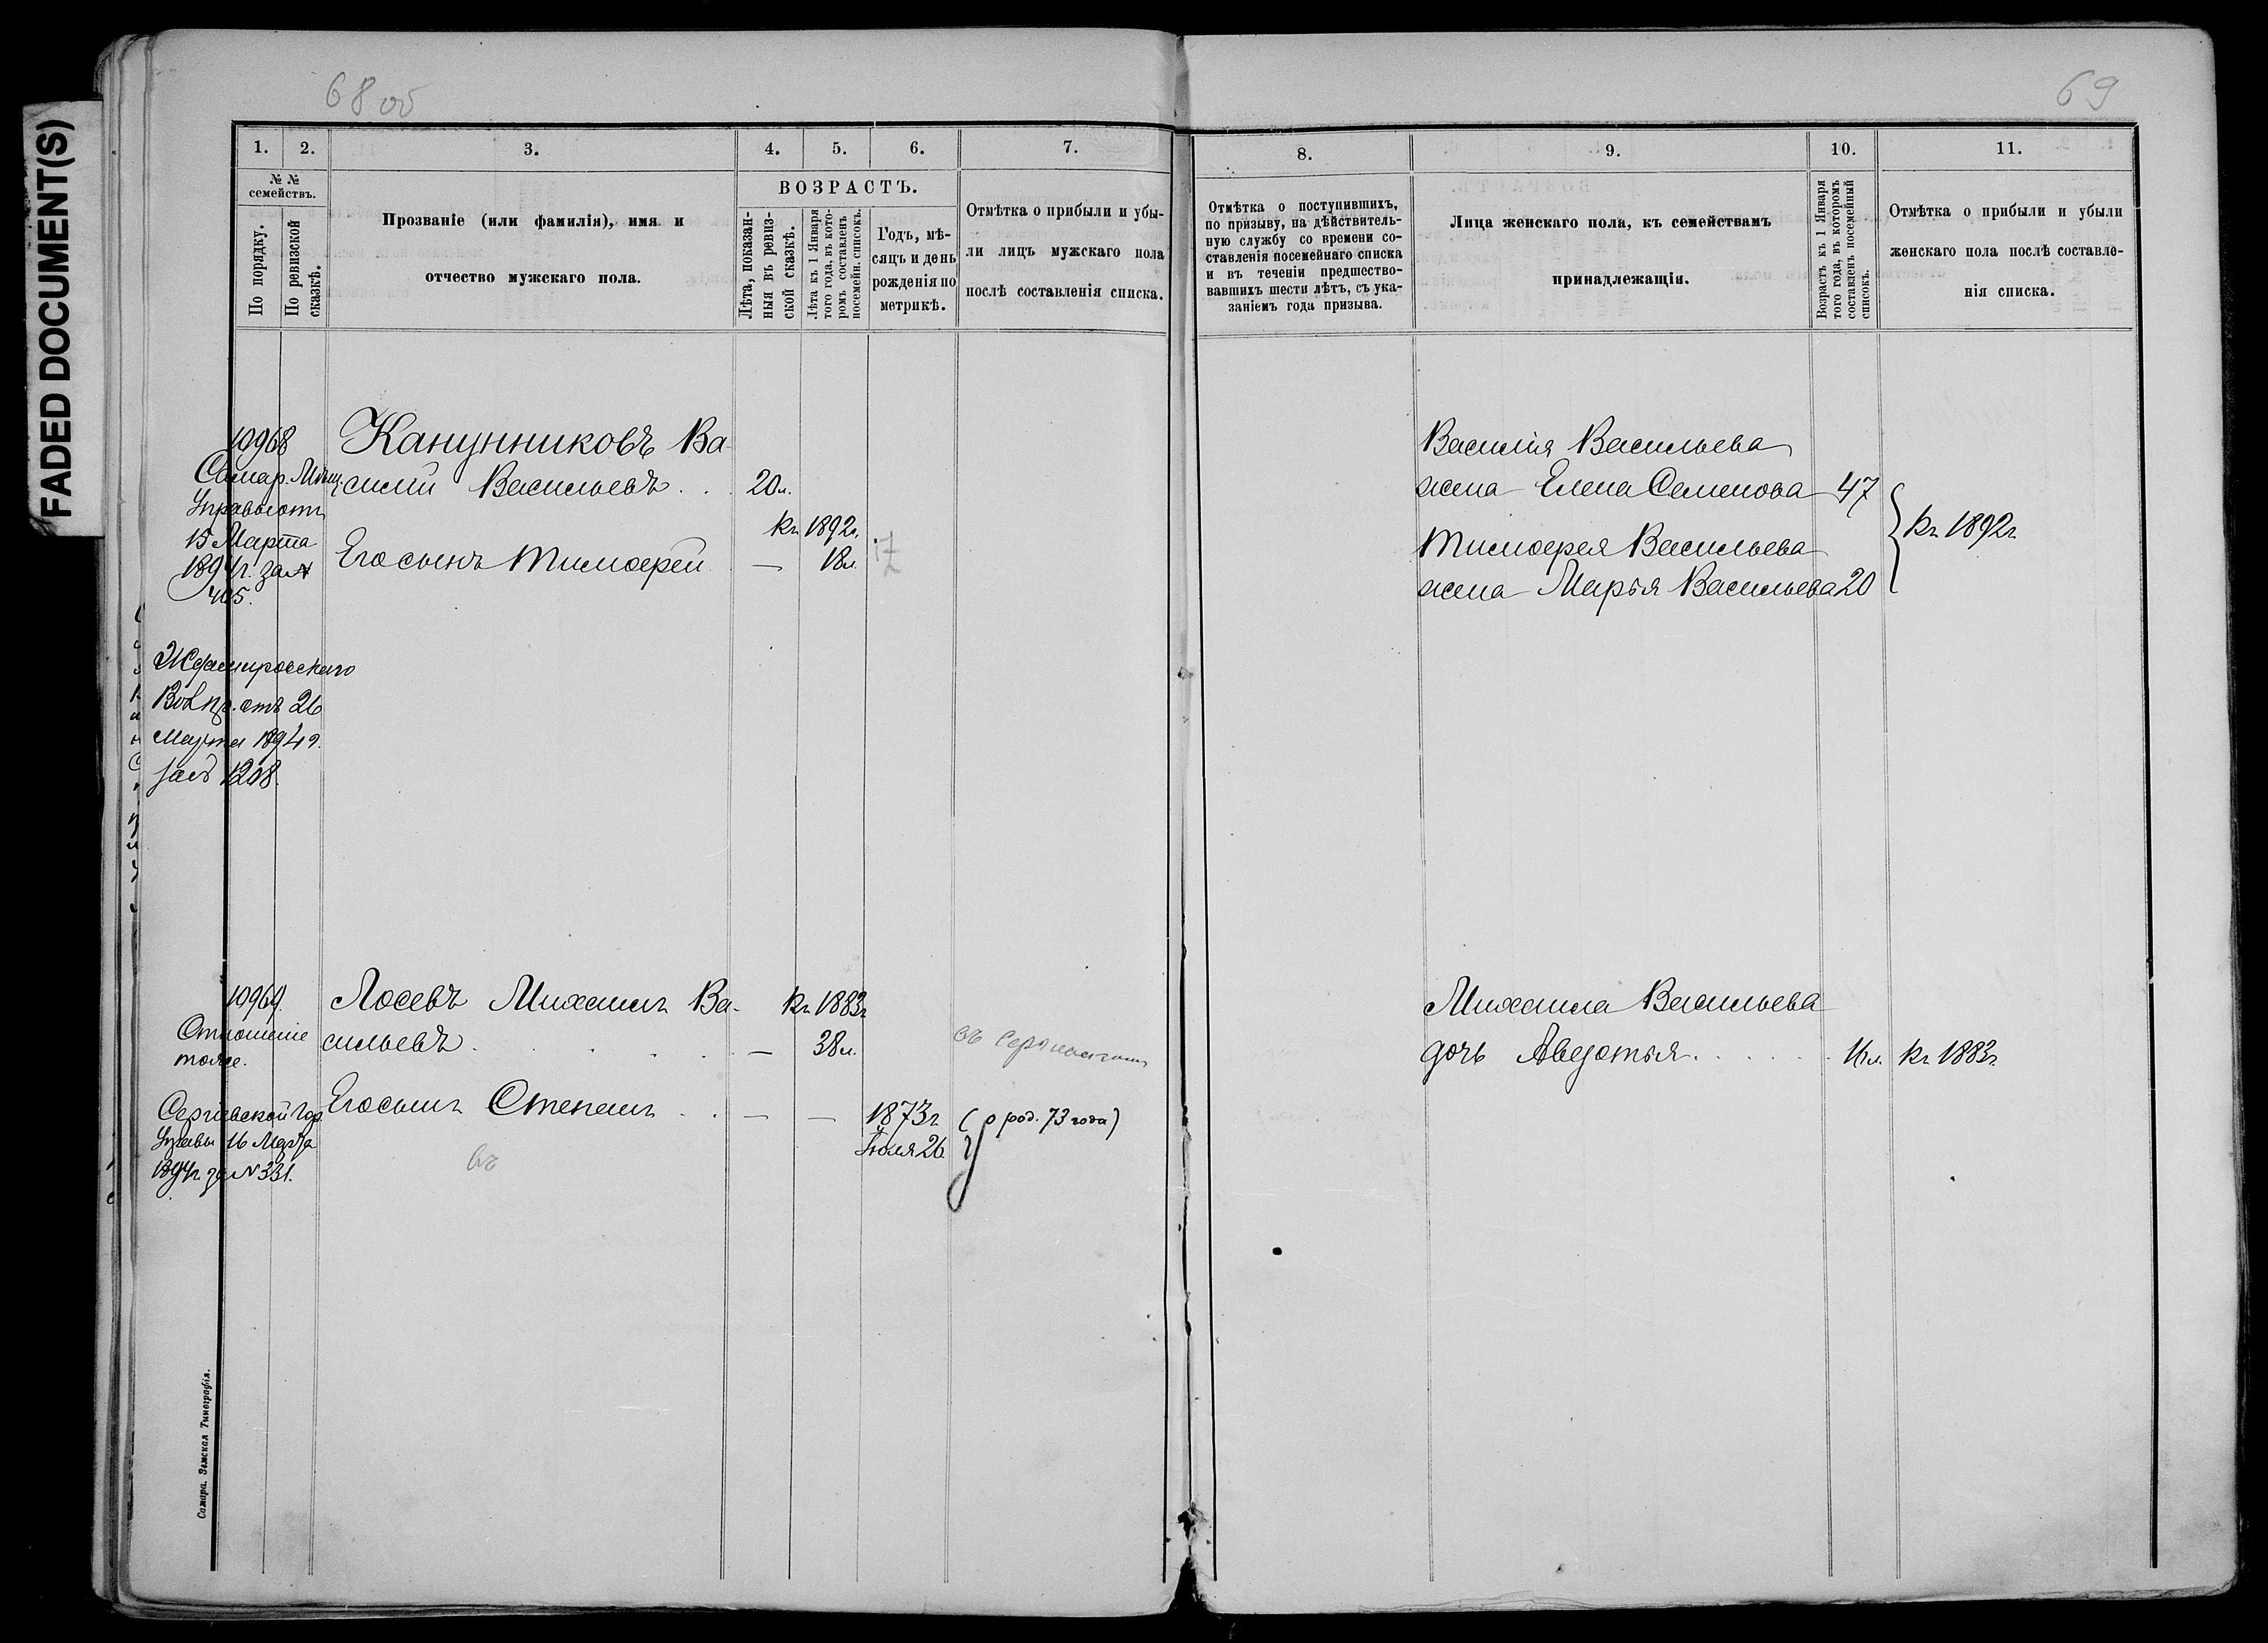 FADED DOCUMENT(S)
68 об
1.
2.
3.
4.
5.
6.
7.
№ №
семействъ.
По порядку.
По ревизской
сказкѣ.
Прозваніе (или фамилія), имя и
отчество мужскаго пола.
ВОЗРАСТЪ.
Лѣта, показан-
ныя въ ревиз-
ской сказкѣ.
Лѣта къ 1 Января
того года, въ кото-
ромъ составленъ
посемейн. списокъ.
Годъ, мѣ-
сяцъ и день
рожденія по
метрикѣ.
Отмѣтка о прибыли и убы-
ли лицъ мужскаго пола
послѣ составленія списка.
10968
Самар. Мѣщ.
Управы отъ
15 Марта
1894 г. за №
405.
Канунниковъ Ва-
силій Васильевъ . . 20 л.
къ 1892 г.
Его сынъ Тимофей — 18 л.
17
Вол. пр. отъ 26
Марта 1894 г.
за № 1208.
10969.
Отношеніе
тоже.
Сергіевской Гор.
Управы 16 Марта
1894 г. за № 331.
Лосевъ Михаилъ Ва- къ 1883 г.
сильевъ . . . . — 38 л.
Его сынъ Степанъ . . — — 1873 г. (о род. 73 года)
Іюля 26
въ
Самара. Земская Типографія.
69
8.
9.
10.
11.
Отмѣтка о поступившихъ,
по призыву, на дѣйствитель-
ную службу со времени со-
ставленія посемейнаго списка
и въ теченіи предшество-
вавшихъ шести лѣтъ, съ ука-
заніемъ года призыва.
Лица женскаго пола, къ семействамъ
принадлежащія.
Возрастъ къ 1 Января
того года, въ которомъ
составленъ посемейный
списокъ.
Отмѣтка о прибыли и убыли
женскаго пола послѣ составле-
нія списка.
Василія Васильева
жена Елена Семенова 47
къ 1892 г.
Тимофея Васильева
жена Марья Васильева 20
Михаила Васильева
дочь Авдотья . . . . . 16 л. къ 1883 г.